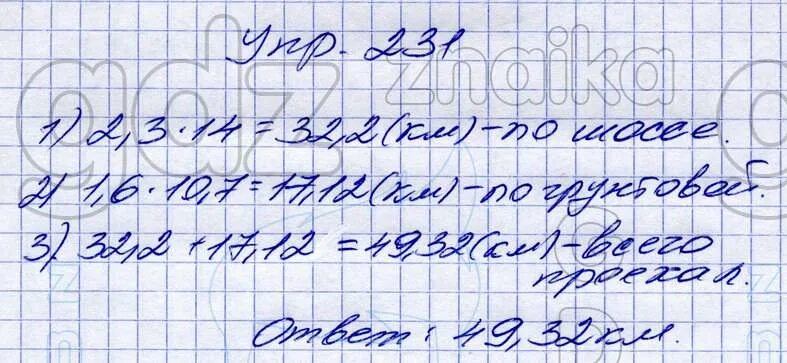 Упр. 231
gdz znaika
1) 2,3·14=32,2(км)-по шоссе.
2) 1,6·10,7=17,12(км)-по грунтовой.
3) 32,2+17,12=49,32(км)-всего
проехал.
Ответ: 49,32 км.